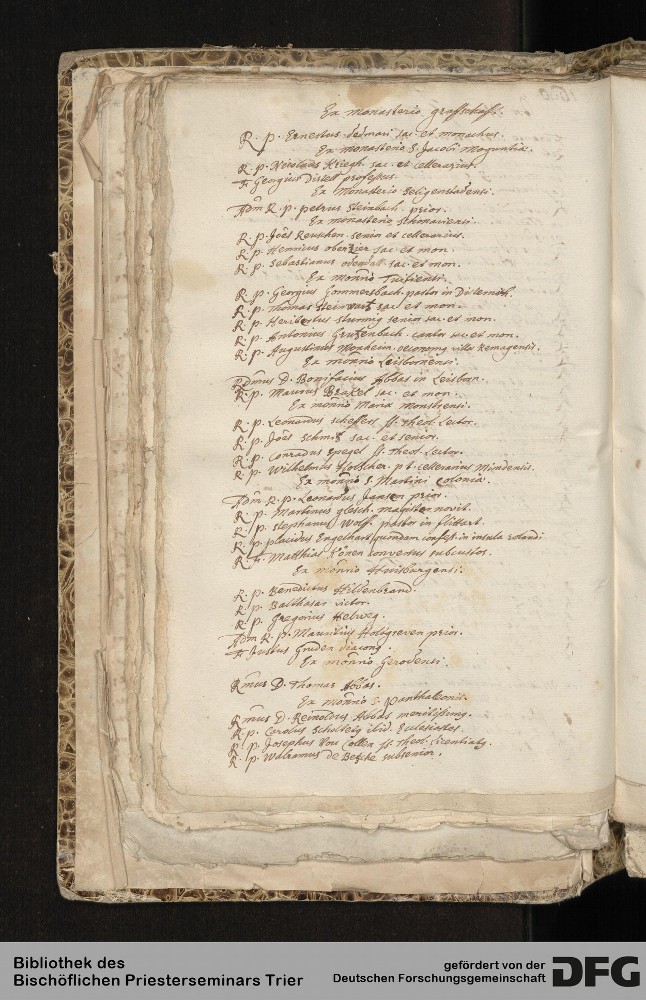 Ex monasterio graffschafft.
R. p. Ernestus sac. et monachus.
Ex monasterio S. Jacobi Moguntiæ.
R. p. Nicolaus Kriegh sac. et cellerarius.
fr. Georgius Distell professus.
Ex Monasterio Seligenstadensi.
Adm R. p. petrus Steinbach prior.
Ex monasterio Schonaviensi.
R. p. Joēs senior et cellerarius.
R. p. Henricus oberzier sac. et mon.
R. p. Sebastianus sac. et mon.
Ex monrio Tuitiensi.
R. p. Georgius Gommersbach pastor in
R. p. Thomas sac. et mon.
R. p. Heribertus senior sac. et mon.
R. p. Antonius Grutzenbach cantor sac. et mon.
R. p. Augustinus Monheim oeconomus villæ Remagensis.
Ex monrio Leisbornensi.
Rdmus D. Bonifacius Abbas in Leisborn.
R. p. Maurus Brakel sac. et mon.
Ex monrio Mariæ monstrensi.
R. p. Leonardus scheffers ss. Theol. Lector.
R. p. Joēs Schmitz sac. et senior.
R. p. Conradus Spegel ss. Theol. Lector.
R. p. Wilhelmus Holscher p. t. cellerarius Mindensis.
Ex monrio S. Martini coloniæ.
Adm R. p. Leonardus Jansen prior.
R. p. Martinus glesch. magister novit.
R. p. Stephanus Wolff pastor in flittart.
R. p. placidus Engelhart quondam confess. in insula rolandi.
R. fr. Matthias Konen conversus subcustos.
Ex monrio Huisburgensi.
R. p. Benedictus Hildenbrand.
R. p. Balthasar victor.
R. p. Gregorius Helweg.
Adm R. p. Mauritius Holtgreven prior.
fr. Justus Gruden diacong.
Ex monrio Gerodensi.
Rmus D. Thomas Abbas.
Ex monrio S. Panthaleonis.
Rmus D. Reinoldus Abbas meritissimg.
R. p. Carolus ibid. Ecclesiastes.
R. p. Josephus Von Cöllen ss. Theol. Licentiatg.
R. p. Walramus de Betzke subsenior.
Bibliothek des
Bischöflichen Priesterseminars Trier
gefördert von der
Deutschen Forschungsgemeinschaft
DFG